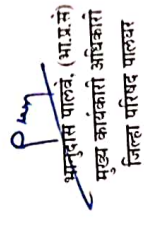 भानुदास पालवे, (भा.प्र.से)
मुख्य कार्यकारी अधिकारी
जिल्हा परिषद पालघर